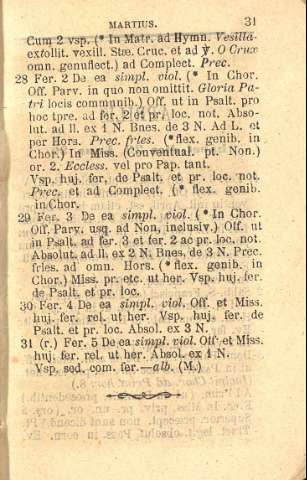 MARTIUS. 31
Cum 2 vsp. (* In Matr. ad Hymn. Vesilla
exfollit. vexill. Stæ. Cruc. et ad ℣. O Crux
omn. genuflect.) ad Complect. Prec.
28 Fer. 2 De ea simpl. viol. (* In Chor.
Off. Parv. in quo non omittit. Gloria Pa-
tri locis communib.) Off. ut in Psalt. pro
hoc tpre. ad fer. 2 et pr. loc. not. Abso-
lut. ad ll. ex 1 N. Bnes. de 3 N. Ad L. et
per Hors. Prec. frles. (* flex. genib. in
Chor.) In Miss. (Conventual. pt. Non.)
or. 2. Eccless. vel pro Pap. tant.
Vsp. huj. fer. de Psalt. et pr. loc. not.
Prec. et ad Complect. (* flex. genib.
in Chor.
29 Fer. 3 De ea simpl. viol. (* In Chor.
Off. Parv. usq. ad Non, inclusiv.) Off. ut
in Psalt. ad fer. 3 et fer. 2 ac pr. loc. not.
Absolut. ad ll. ex 2 N. Bnes. de 3 N. Prec.
fries. ad omn. Hors. (* flex. genib. in
Chor.) Miss. pr. etc. ut her. Vsp. huj. fer.
de Psalt. et pr. loc.
30 Fer. 4 De ea simpl. viol. Off. et Miss.
huj. fer. rel. ut her. Vsp. huj. fer. de
Psalt. et pr. loc. Absol. ex 3 N.
31 (r.) Fer. 5 De ea simpl. viol. Off. et Miss.
huj. fer. rel. ut her. Absol. ex 1 N.
Vsp. seq. com. fer.—alb. (M.)